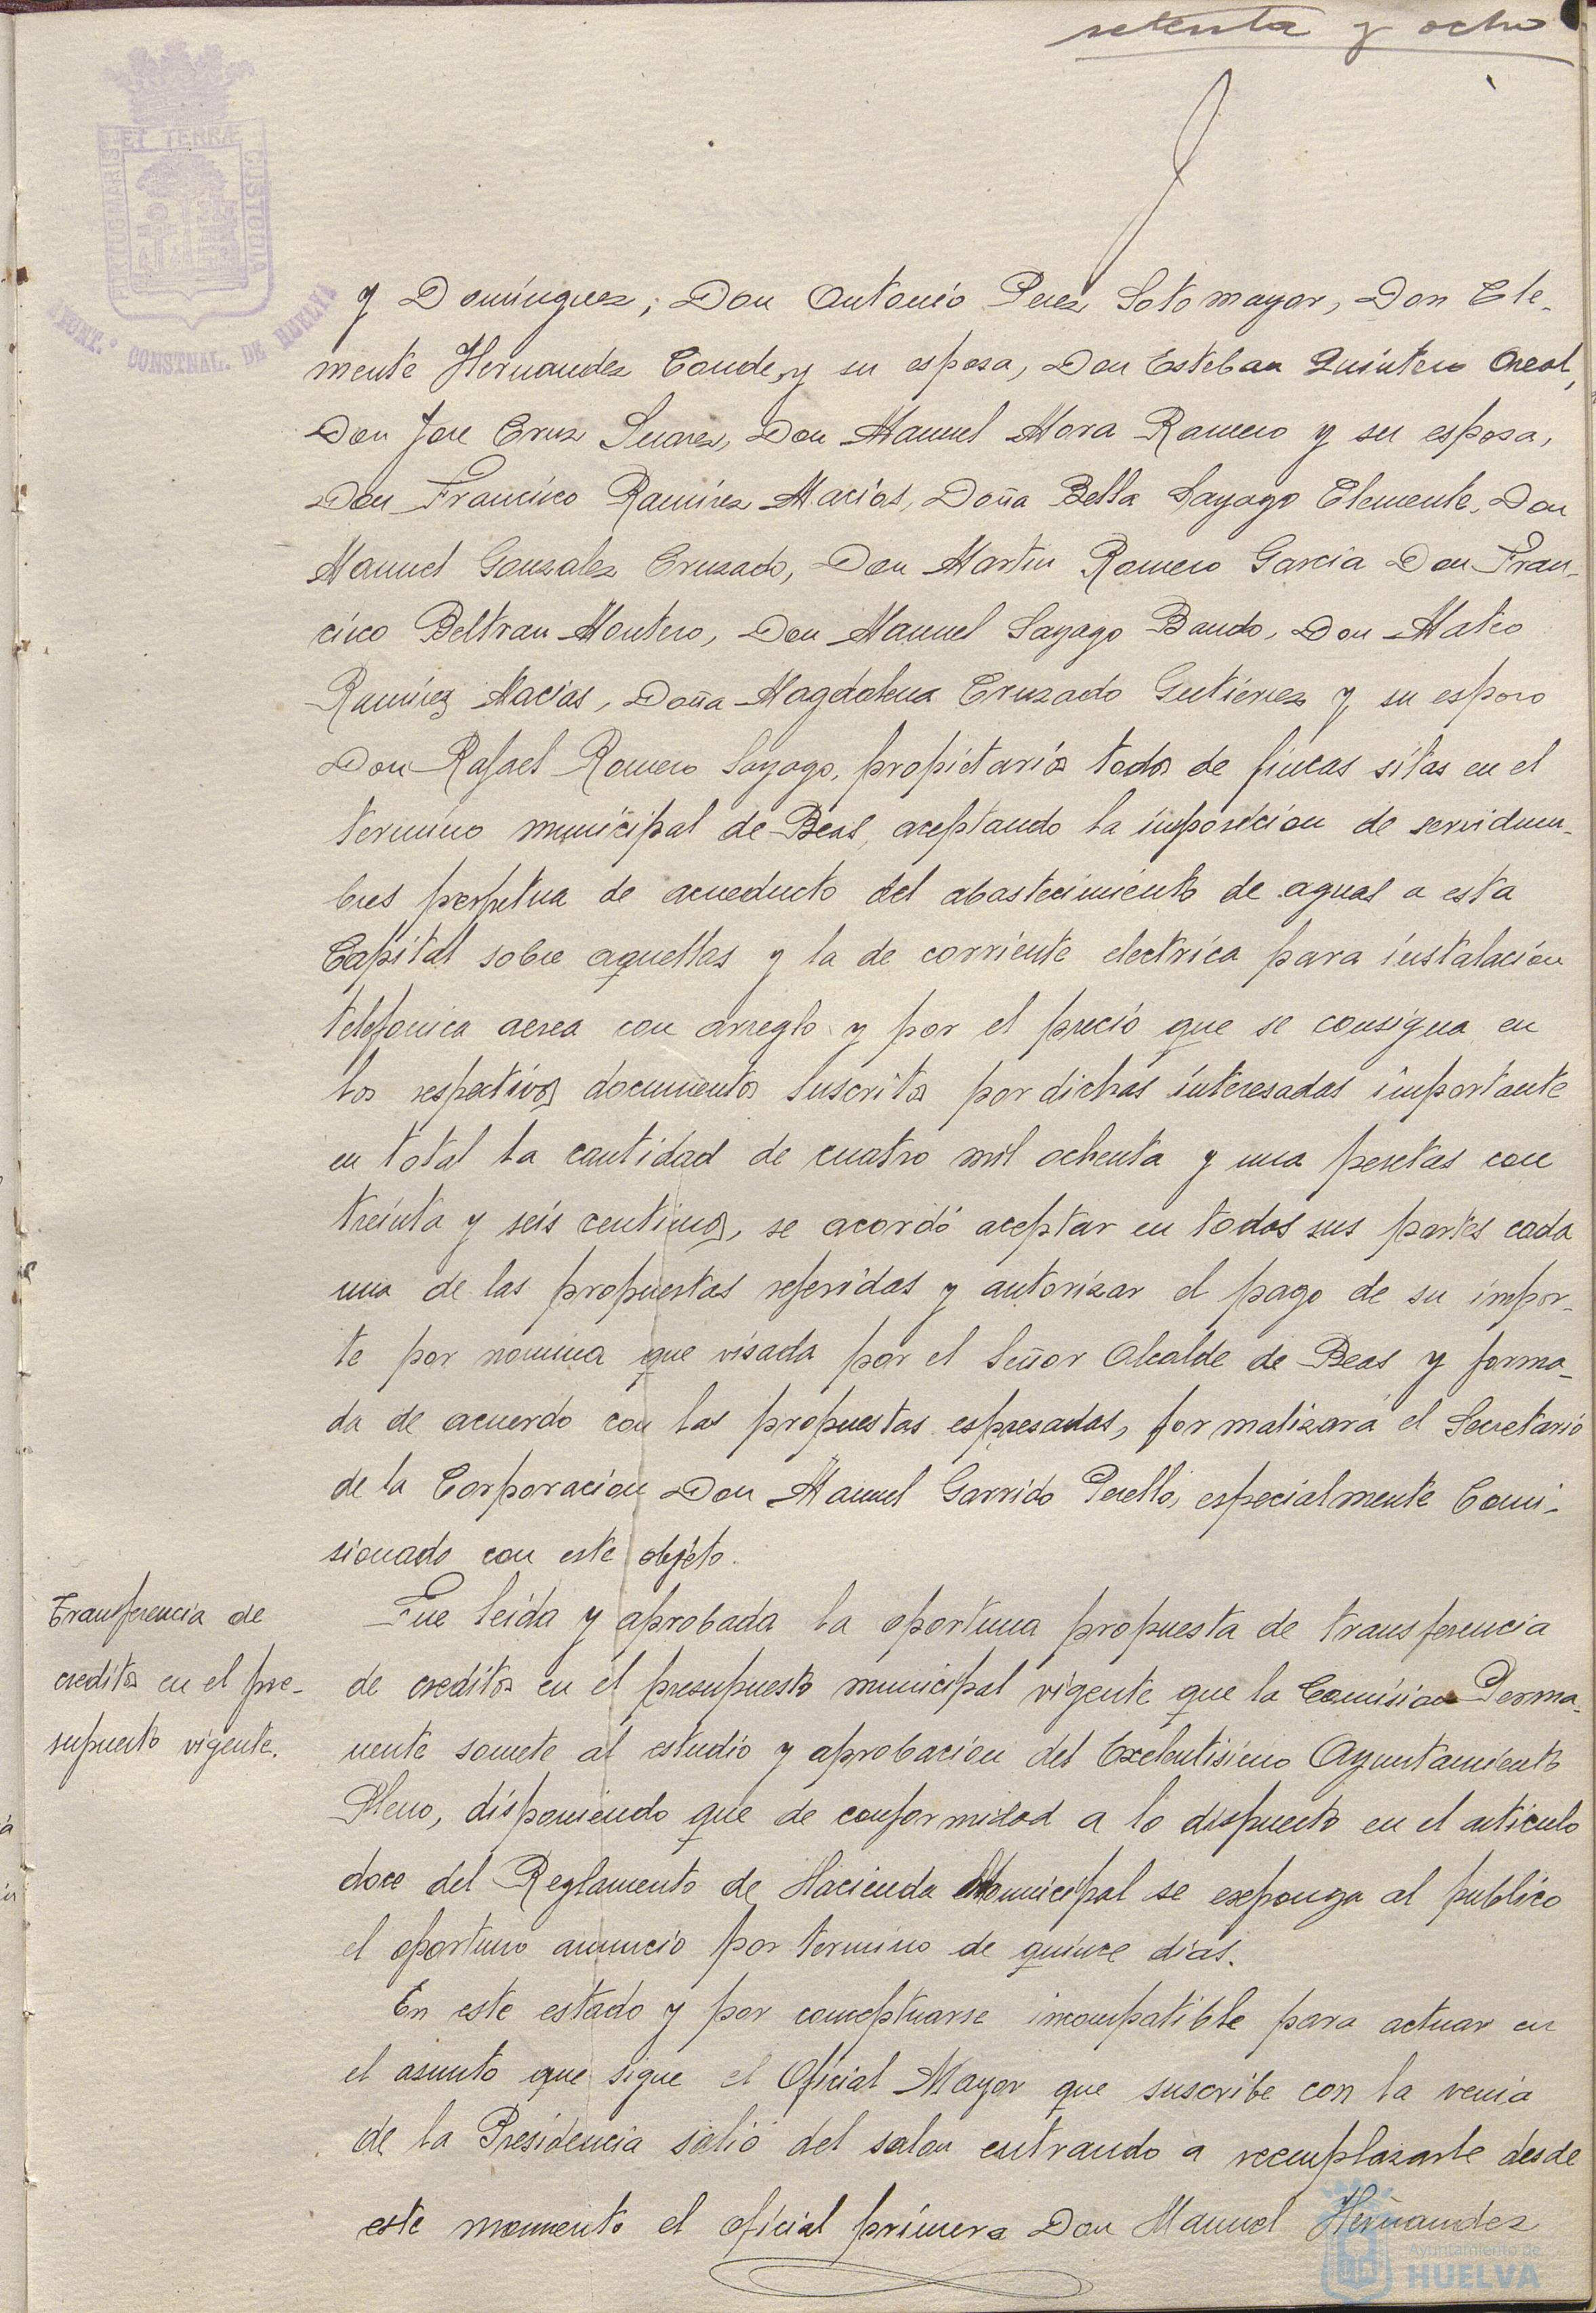 setenta y ocho
PORTUS MARIS ET TERRÆ CUSTODIA
AYUNT.º CONSTNAL. DE HUELVA
y Dominguez; Don Antonio Perez Sotomayor, Don Cle-
mente Hernandez Conde y su esposa, Don Esteban Quintero
Don Jose Cruz Suarez, Don Manuel Mora Romero y su esposa,
Don Francisco Ramirez Macias, Doña Bella Sayago Clemente, Don
Manuel Gonzalez Cruzado, Don Martin Romero Garcia Don Fran-
cisco Beltran Montero, Don Manuel Sayago Bando, Don Mateo
Ramirez Macias, Doña Magdalena Cruzado Gutierrez y su esposo
Don Rafael Romero Sayago, propietarios todos de fincas sitas en el
termino municipal de Beas, aceptando la imposicion de servidum-
bres perpetua de acueducto del abastecimiento de aguas a esta
Capital sobre aquellas y la de corriente electrica para instalacion
telefonica aerea con arreglo y por el precio que se consigna en
los respectivos documentos suscritos por dichos interesados importante
en total la cantidad de cuatro mil ochenta y una pesetas con
treinta y seis centimos, se acordó aceptar en todas sus partes cada
una de las propuestas referidas y autorizar el pago de su impor-
te por nomina que visada por el Señor Alcalde de Beas y forma-
da de acuerdo con las propuestas espresadas, formalizará el Secretario
de la Corporacion Don Manuel Garrido Perello, especialmente Comi-
sionado con este objeto.
Transferencia de
creditos en el pre-
supuesto vigente.
Fue leida y aprobada la oportuna propuesta de transferencia
de creditos en el presupuesto municipal vigente que la Comision Perma-
nente somete al estudio y aprobacion del Excelentisimo Ayuntamiento
Pleno, disponiendo que de conformidad a lo dispuesto en el articulo
doce del Reglamento de Hacienda Municipal se exponga al publico
el oportuno anuncio por termino de quince dias.
En este estado y por conceptuarse incompatible para actuar en
el asunto que sigue el Oficial Mayor que suscribe con la venia
de la Presidencia salió del salon entrando a reemplazarle desde
este momento el oficial primero Don Manuel Hernandez
Ayuntamiento de
HUELVA